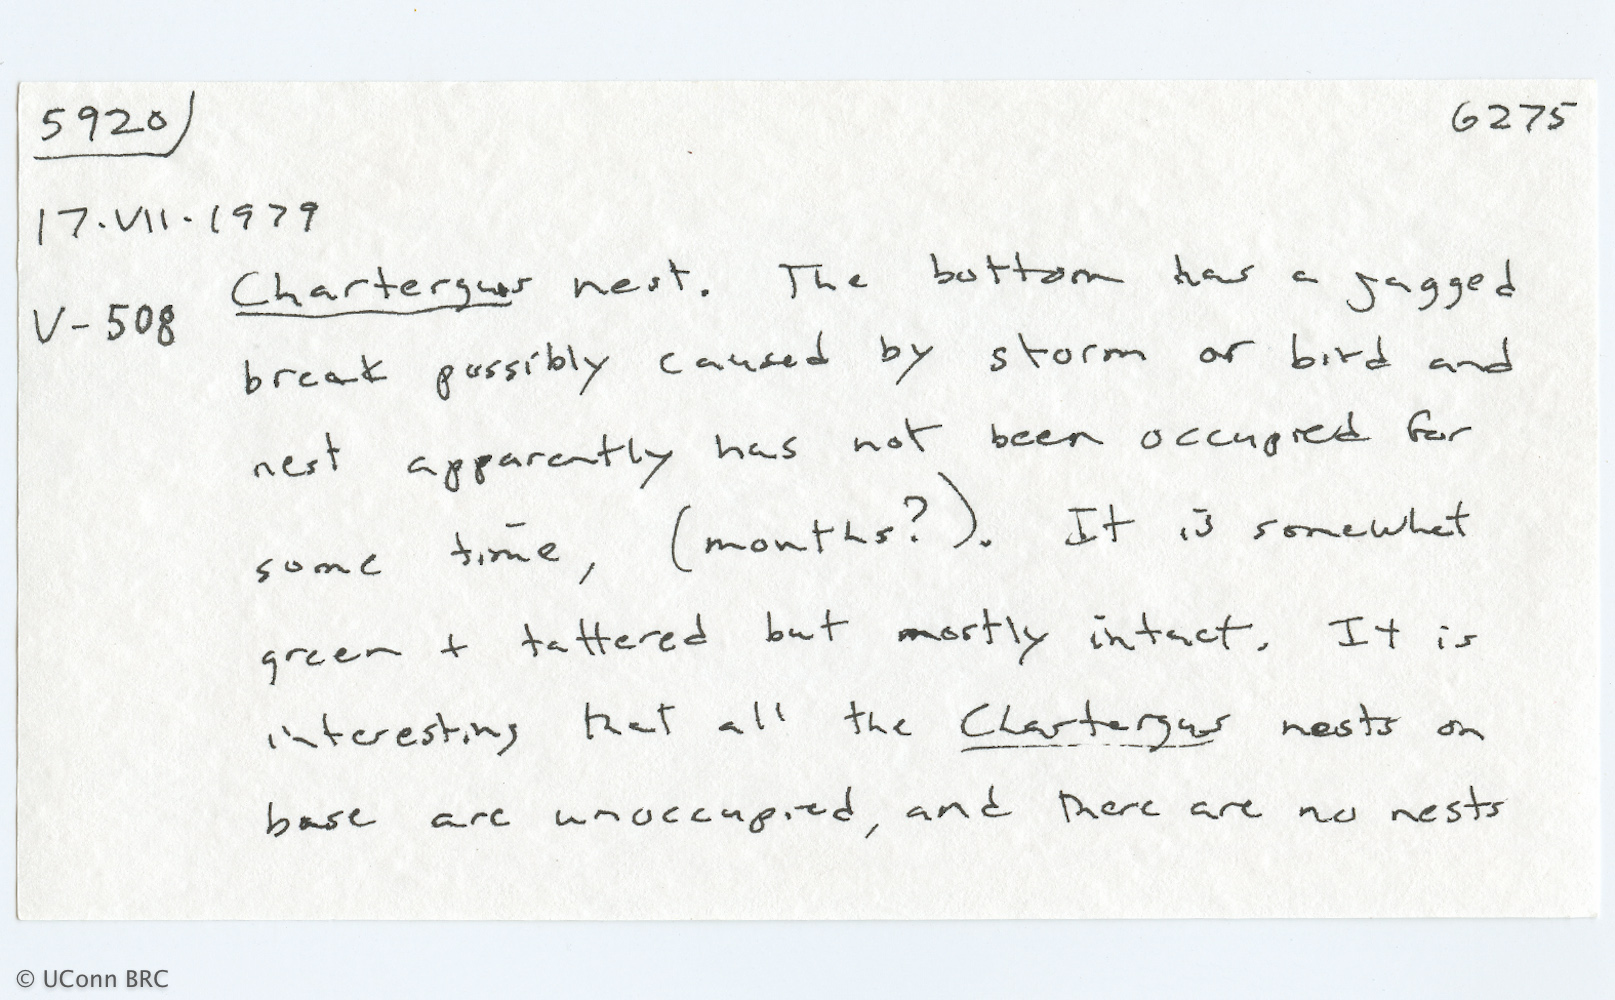 5920 6275
17.VII.1979
V-508 Chartergus nest. The bottom has a jagged
break possibly caused by storm or bird and
nest apparently has not been occupied for
some time, (months?). It is somewhat
green + tattered but mostly intact. It is
interesting that all the Chartergus nests on
base are unoccupied, and there are no nests
© UConn BRC